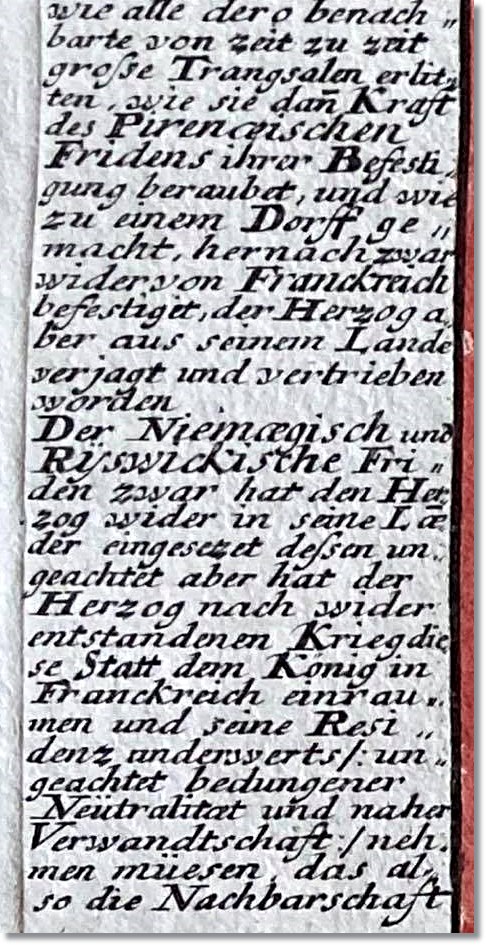 wie alle der o benach„
barte von zeit zu zeit
grosse Trangsalen erlit„
ten, wie sie dan̄ Kraft
des Pirenæischen
Fridens ihrer Befesti„
gung beraubet, und wie
zu einem Dorff ge„
macht, hernach zwar
wider von Franckreich
befestiget, der Herzog a„
ber aus seinem Lande
verjagt und vertrieben
worden
Der Niemægisch und
Rÿswickische Fri„
den zwar hat den Her„
zog wider in seine Lǣ
der eingesezet dessen un„
geachtet aber hat der
Herzog nach wider
entstandenen Krieg die„
se Statt dem König in
Franckreich einrau„
men und seine Resi„
denz anderwerts /: un„
geachtet bedungener
Neütralitæt und naher
Verwandtschaft :/ neh„
men müesen, das al„
so die Nachbarschaft